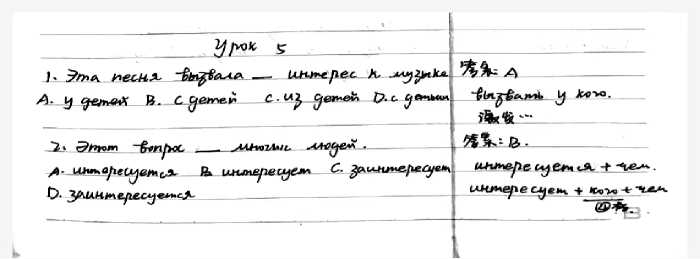 Урок 5
1. Эта песня вызвала — интерес к музыке
A. у детей B. с детей C. из детей D. с детьми
2. Этот вопрос — многие людей.
A. интересуется B. интересует C. заинтересует
D. заинтересуется
答案: A
вызвать у кого.
激发…
答案: B.
интересуется + чем.
интересует + кого + чем